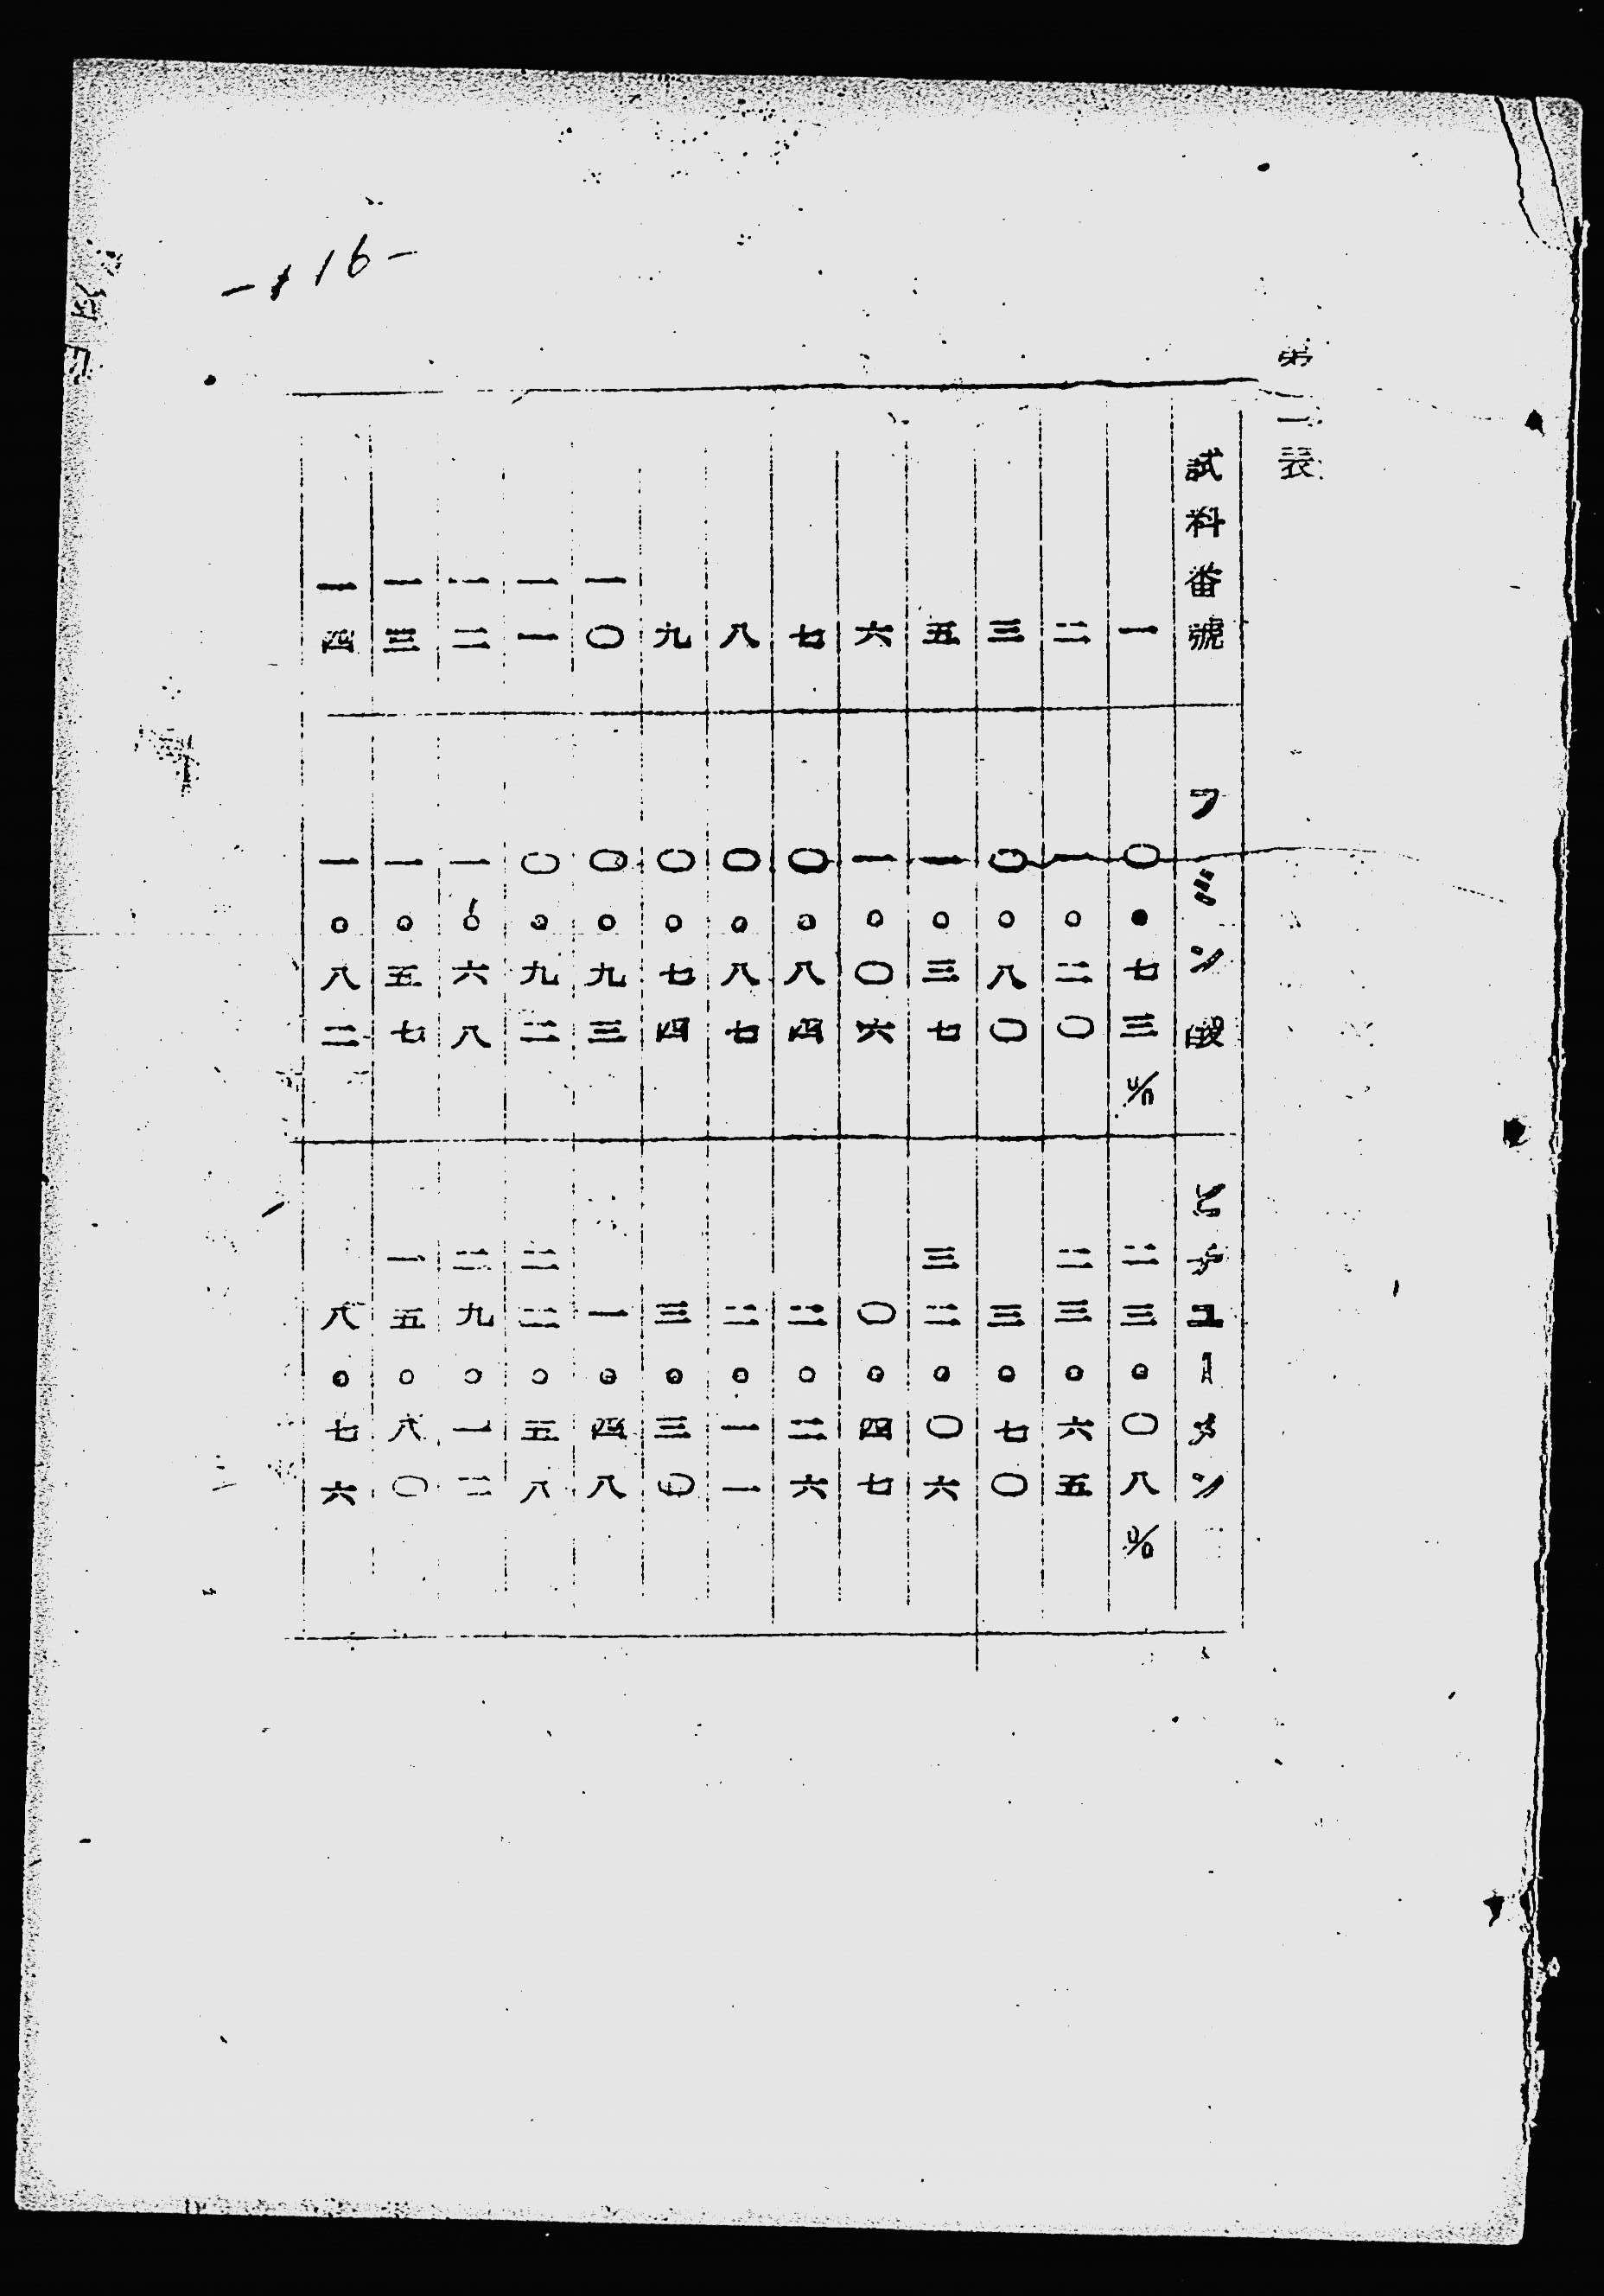 -116-
第一表
試料番號 フミン酸 ビチューメン
一 〇.七三% 二三.〇八%
二 一.二〇 二三.六五
三 〇.八〇 三.七〇
五 一.三七 三二.〇六
六 一.〇六 〇.四七
七 〇.八四 二.二六
八 〇.八七 二.一一
九 〇.七四 三.三〇
一〇 〇.九三 一.四八
一一 〇.九二 二二.五八
一二 一.六八 二九.一二
一三 一.五七 一五.八〇
一四 一.八二 八.七六